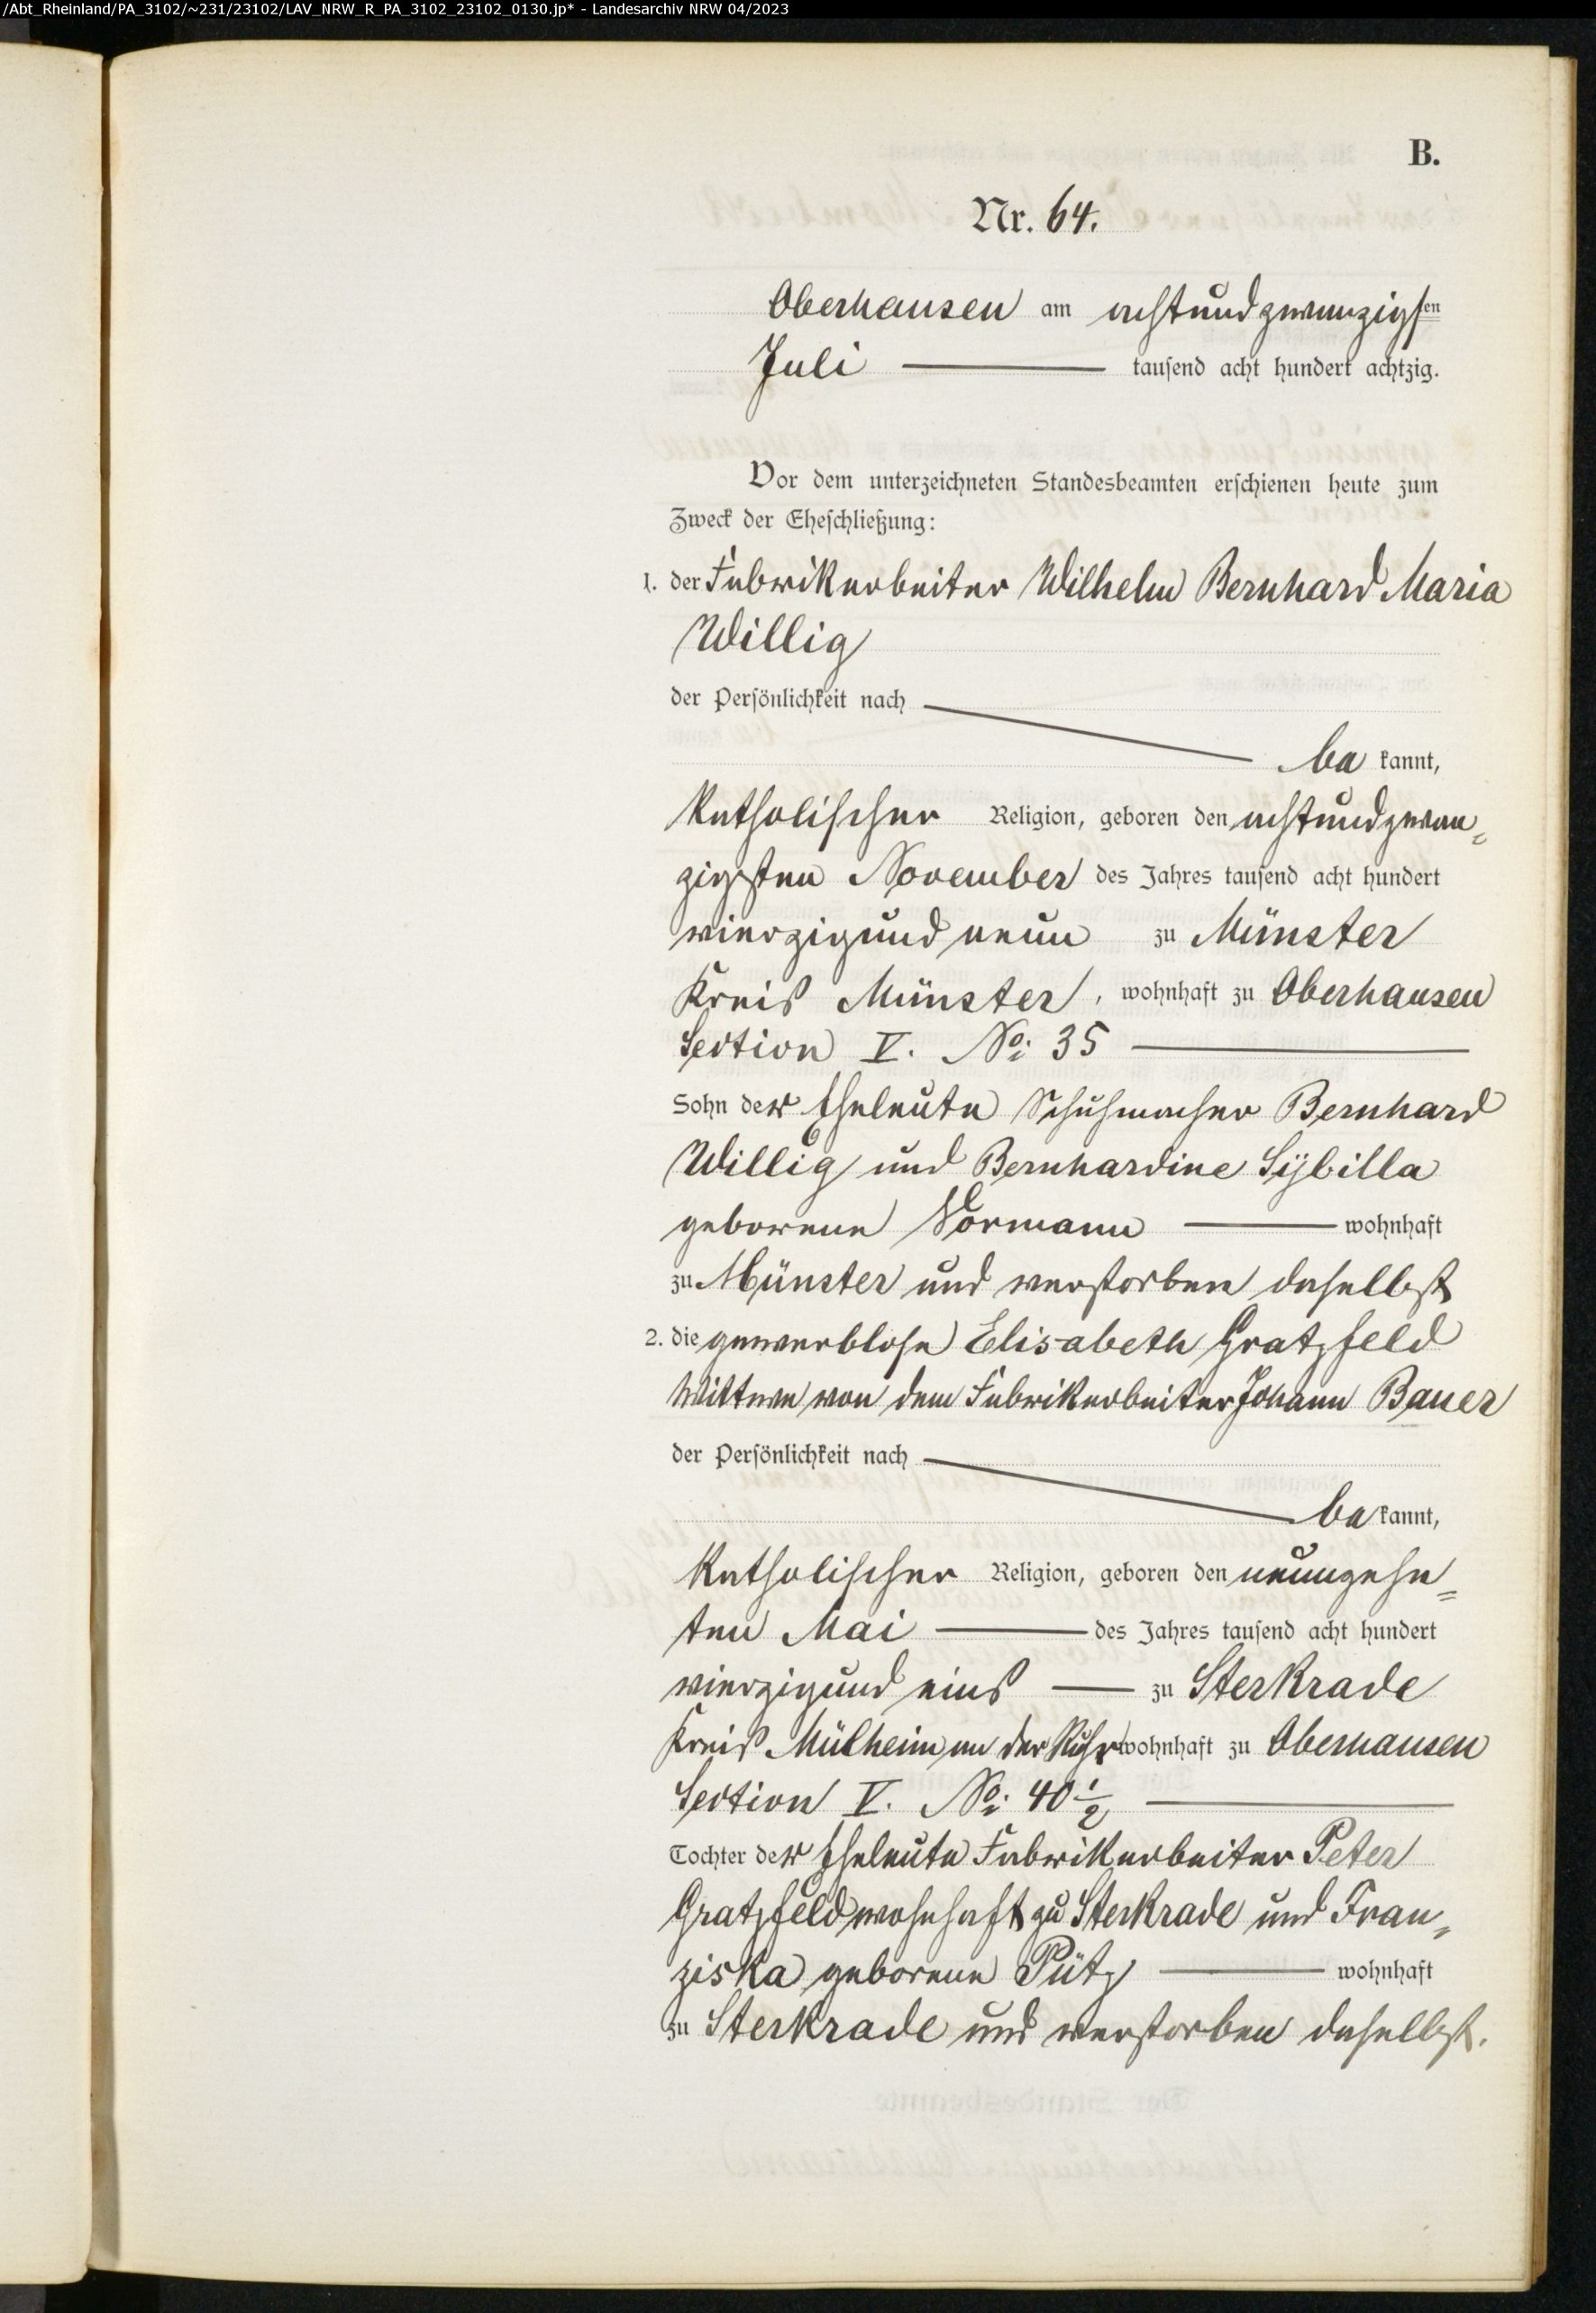 /Abt_Rheinland/PA_3102/~231/23102/LAV_NRW_R_PA_3102_23102_0130.jp* - Landesarchiv NRW 04/2023
B.
Nr. 64.
Oberhausen am achtundzwanzigsten
Juli tausend acht hundert achtzig.
Vor dem unterzeichneten Standesbeamten erschienen heute zum
Zweck der Eheschließung:
1. der Fabrikarbeiter Wilhelm Bernhard Maria
Willig
der Persönlichkeit nach
be kannt,
katholischer Religion, geboren den achtundzwan=
zigsten November des Jahres tausend acht hundert
vierzigund neun zu Münster
Kreis Münster, wohnhaft zu Oberhausen
Section V. No: 35
Sohn der Eheleute Schuhmacher Bernhard
Willig und Bernhardine Sÿbilla
geborene Vormann wohnhaft
zu Münster und verstorben daselbst
2. die gewerblose Elisabeth Gratzfeld
Wittwe von dem Fabrikarbeiter Johann Bauer
der Persönlichkeit nach
be kannt,
katholischer Religion, geboren den neunzehn=
ten Mai des Jahres tausend acht hundert
vierzigund eins zu Sterkrade
Kreis Mülheim an der Ruhr wohnhaft zu Oberhausen
Section V. No: 40 1/2
Tochter der Eheleute Fabrikarbeiter Peter
Gratzfeld wohnhaft zu Sterkrade und Fran=
ziska geborene Pütz wohnhaft
zu Sterkrade und verstorben daselbst.